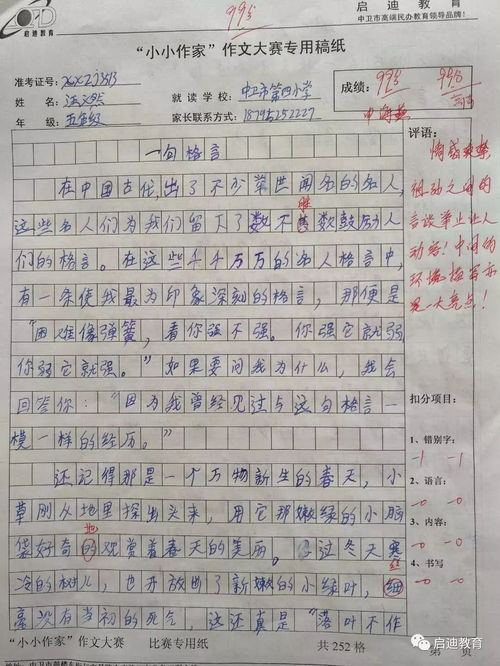 启迪教育
99分
启迪教育
中卫市高端民办教育领导品牌!
“小小作家”作文大赛专用稿纸
准考证号:
姓 名
年 级: 五年级
就 读 学 校: 中卫市第四小学
家长联系方式: 18795252227
成绩: 99分
评语:
一句格言
在中国古代,出了不少举世闻名的名人,
这些名人们为我们留下了数不胜数鼓励人
们的格言。在这些千千万万的名人格言中,
有一条使我最为印象深刻的格言,那便是
“困难像弹簧,看你强不强。你强它就弱,
你弱它就强。”如果要问我为什么,我会
回答你:“因为我曾经见过与这句格言一
模一样的经历。”
还记得那是一个万物新生的春天,小
草刚从地里探出头来,用它那嫩绿的小脑
袋好奇的地观赏着春天的美丽。过冬天寒
冷的树儿,也开放出了新嫩的小绿叶,细丝
毫没有当初的死气,这还真是“落叶不作
言谈举止让人
动容!中间的
环境描写亦
是一大亮点!
扣分项目:
1、错别字:
-1 -1
2、语言:
-0 -0
3、内容:
-0 -0
4、书写
-0 -0
“小小作家”作文大赛 比赛专用纸 共 252 格 第 页
启迪教育